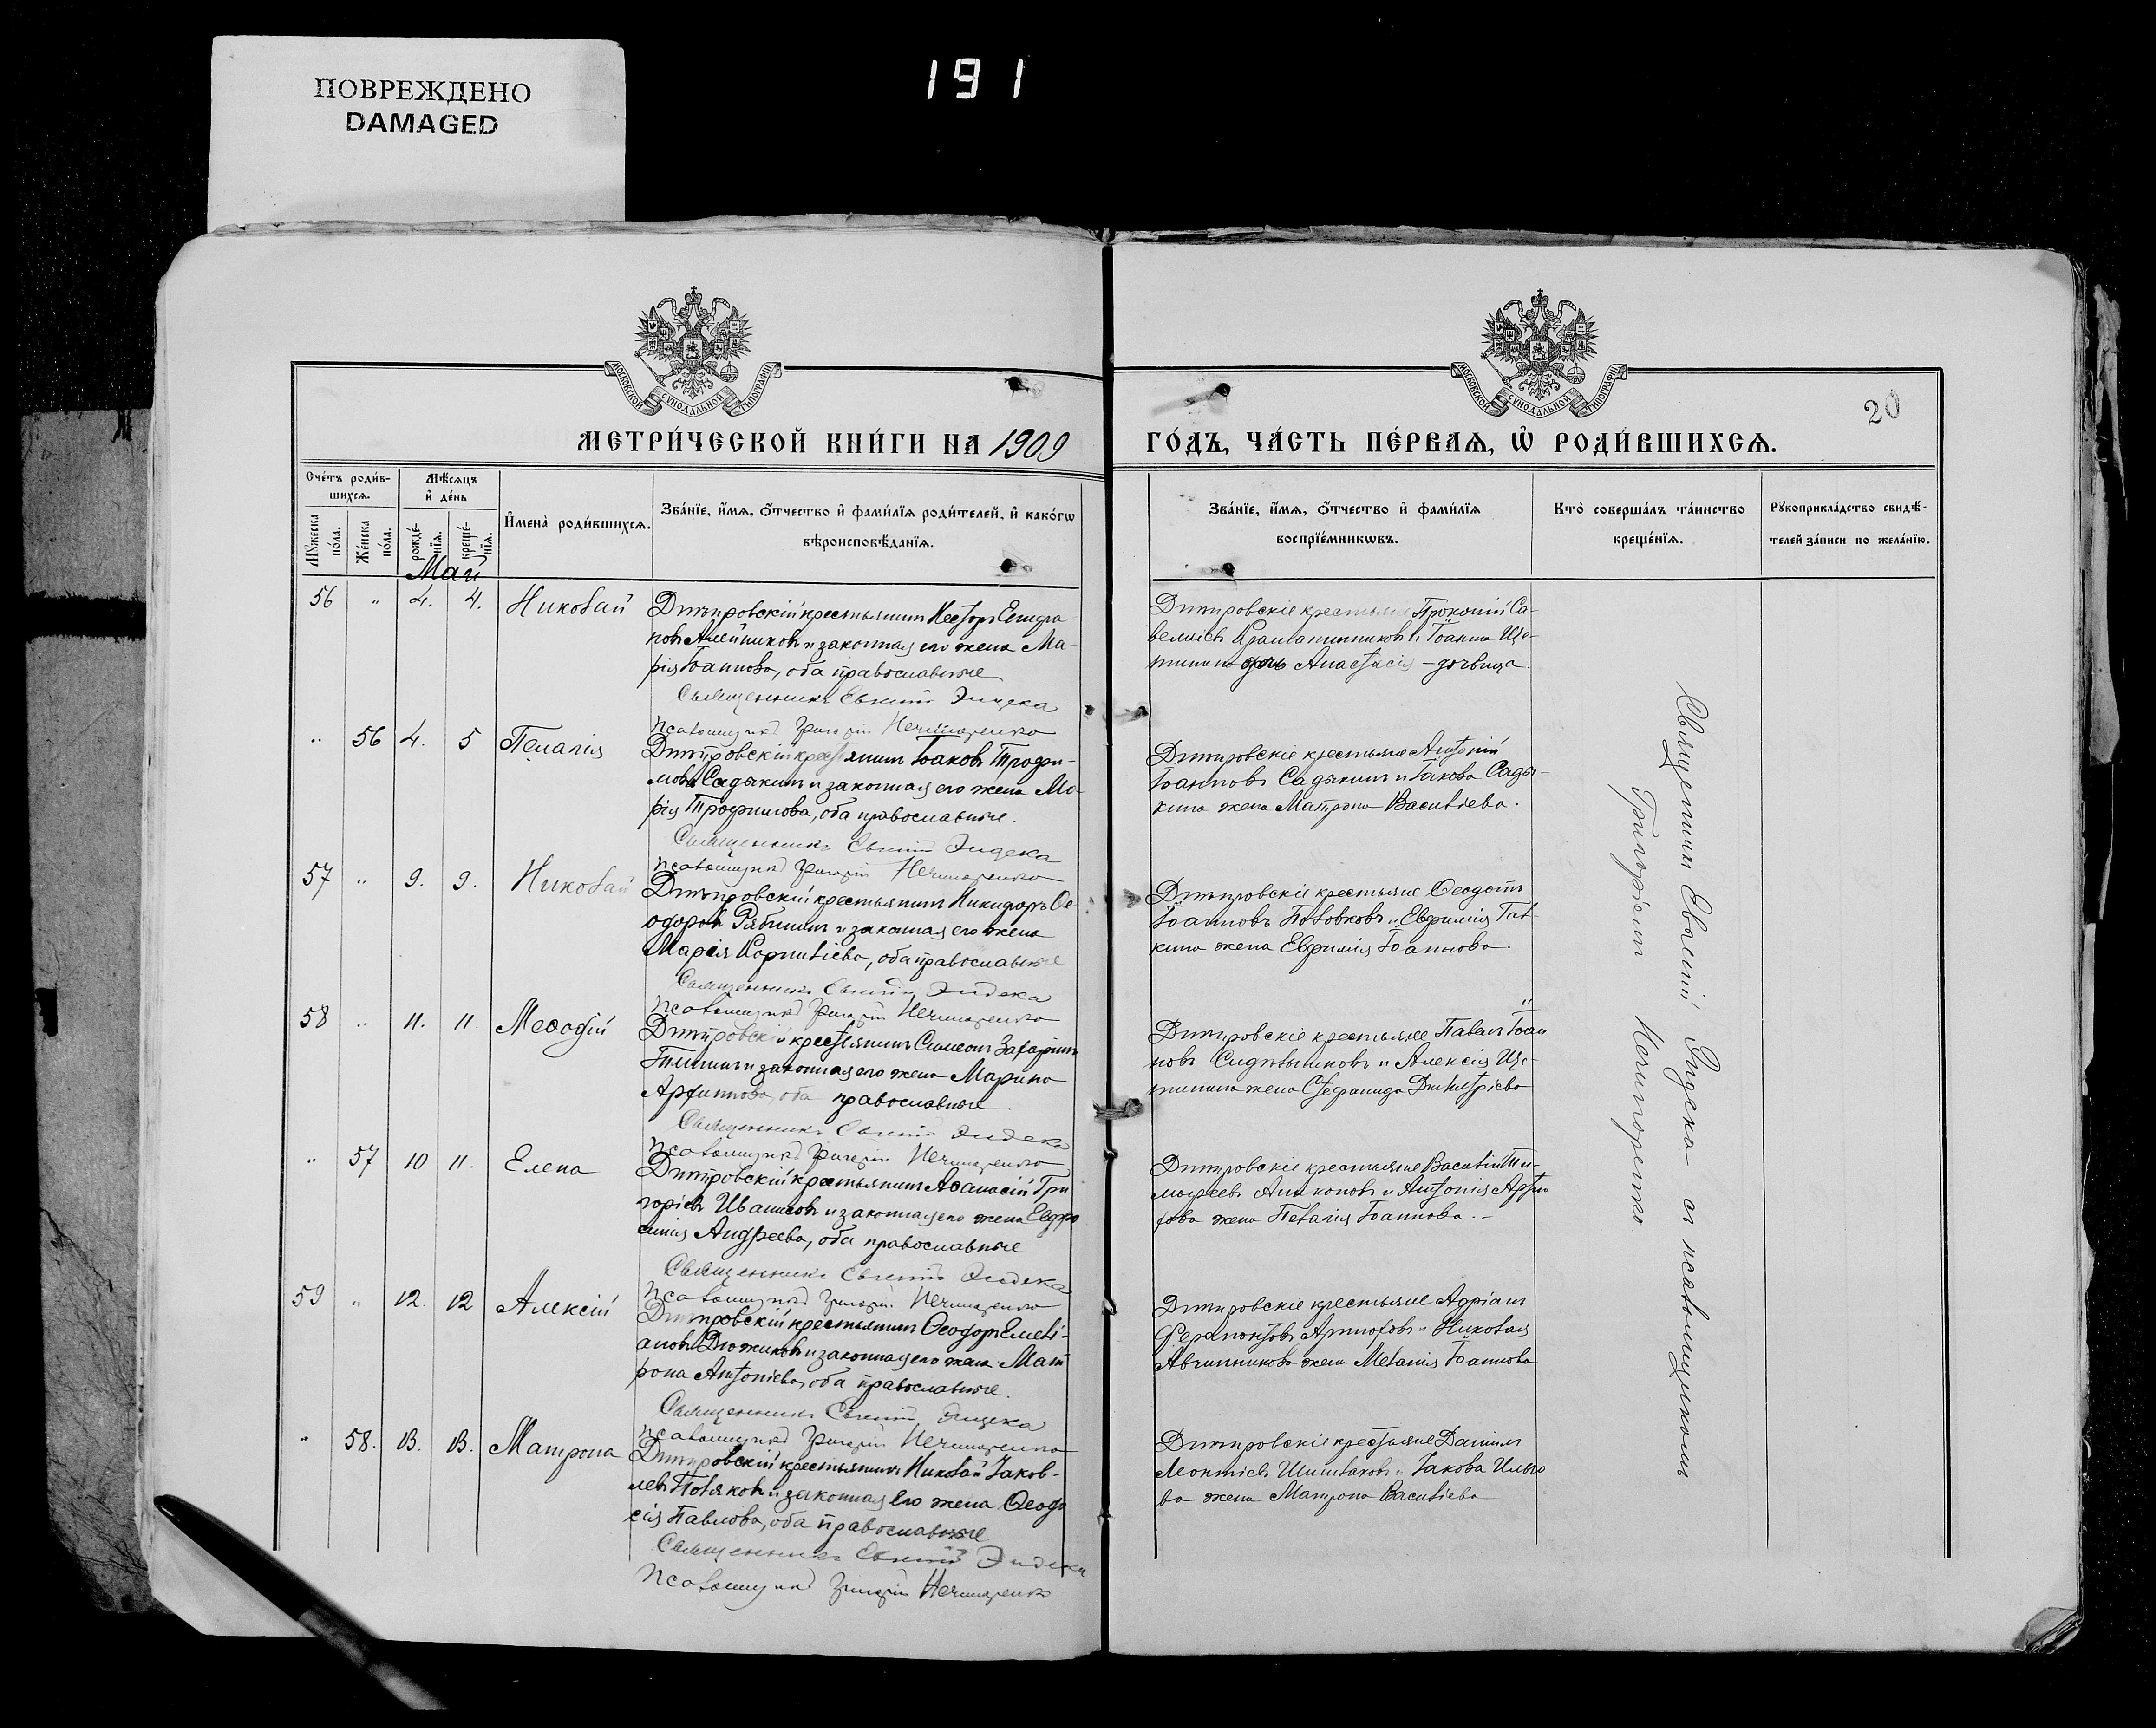 ПОВРЕЖДЕНО
DAMAGED
191
МОСКОВСКОЙ СѴНОДАЛЬНОЙ ТИПОГРАФІИ
МОСКОВСКОЙ СѴНОДАЛЬНОЙ ТИПОГРАФІИ
20
МЕТРИ́ЧЕСКОЙ КНИ́ГИ НА 1909
ГО́ДЪ, ЧА́СТЬ ПЕ́РВАѦ, Ѡ҆ РОДИ́ВШИХСѦ.
Сче́тъ роди́в-
шихсѧ.
Мꙋ́жеска
по́ла.
Же́нска
по́ла.
Мѣ́сѧцъ
и҆ де́нь
рожде́-
нїѧ.
креще́-
нїѧ.
И҆мена̀ роди́вшихсѧ.
Зва́нїе, и҆́мѧ, ѻ҆́тчество и҆ фами́лїѧ роди́телей, и҆ како́гѡ
вѣроисповѣ́данїѧ.
Зва́нїе, и҆́мѧ, ѻ҆́тчество и҆ фами́лїѧ
воспрїе́мникѡвъ.
Кто̀ соверша́лъ та́инство
креще́нїѧ.
Рꙋкоприкла́дство свидѣ́-
телей за́писи по жела́нїю.
Май
56 " 4. 4. Николай
Дмитровскій крестьянинъ Несторъ
Алейниковъ и законная его жена Ма-
рія Іоаннова, оба православные
Священникъ Евгеній Эндека
Псаломщикъ Григорій Нечипоренко
Дмитровскіе крестьяне Прокопій Са-
вельевъ и Іоанна Ще-
дочь Анастасія – дѣвица.
" 56 4. 5 Пелагія
Дмитровскій крестьянинъ Іаковъ Трофи-
мовъ Садыкинъ и законная его жена Ма-
рія Трофимова, оба православные.
Священникъ Евгеній Эндека
Псаломщикъ Григорій Нечипоренко
Дмитровскіе крестьяне Антоній
Іоанновъ Садыкинъ и Іакова Сады-
кина жена Матрона Васильева.
57 " 9. 9. Николай
Дмитровскій крестьянинъ Никифоръ Ѳе-
одоровъ Рябининъ и законная его жена
Марія Корнильева, оба православные
Священникъ Евгеній Эндека
Псаломщикъ Григорій Нечипоренко
Дмитровскіе крестьяне Ѳеодотъ
Іоанновъ Половковъ и Евфимія Гал-
кина жена Евфимія Іоаннова.
58 " 11. 11. Меѳодій
Дмитровскій крестьянинъ Симеонъ Захаринъ
и законная его жена Марина
оба православные.
Священникъ Евгеній Эндека
Псаломщикъ Григорій Нечипоренко
Дмитровскіе крестьяне Павелъ Іоан
новъ Сидѣльниковъ и Алексія Ще-
жена Стефанида Димитріева
" 57 10 11. Елена
Дмитровскій крестьянинъ Аѳанасій Гри
горьевъ и законная его жена Евфро
синія Андреева, оба православные
Священникъ Евгеній Эндека
Псаломщикъ Григорій Нечипоренко
Дмитровскіе крестьяне Василій Ти-
мофеевъ и Антонія
жена Пелагія Іоаннова. –
59 " 12. 12 Алексій
Дмитровскій крестьянинъ Ѳеодоръ Емелі-
ановъ Дюжиковъ и законная его жена Мат
рона Антоніева, оба православные.
Священникъ Евгеній Эндека
Псаломщикъ Григорій Нечипоренко
Дмитровскіе крестьяне Адріанъ
Ферапонтовъ и Николая
Авчинникова жена Меланія Іоаннова
" 58. 13. 13. Матрона
Дмитровскій крестьянинъ Николай Іаков-
левъ Поляковъ и законная его жена Ѳеодо
сія Павлова, оба православные
Священникъ Евгеній Эндека
Псаломщикъ Григорій Нечипоренко
Дмитровскіе крестьяне Даніилъ
Леонтіевъ Шишлаковъ и Іакова
жена Матрона Васильева
Священникъ Евгеній Эндека съ псаломщикомъ
Григоріемъ Нечипоренко